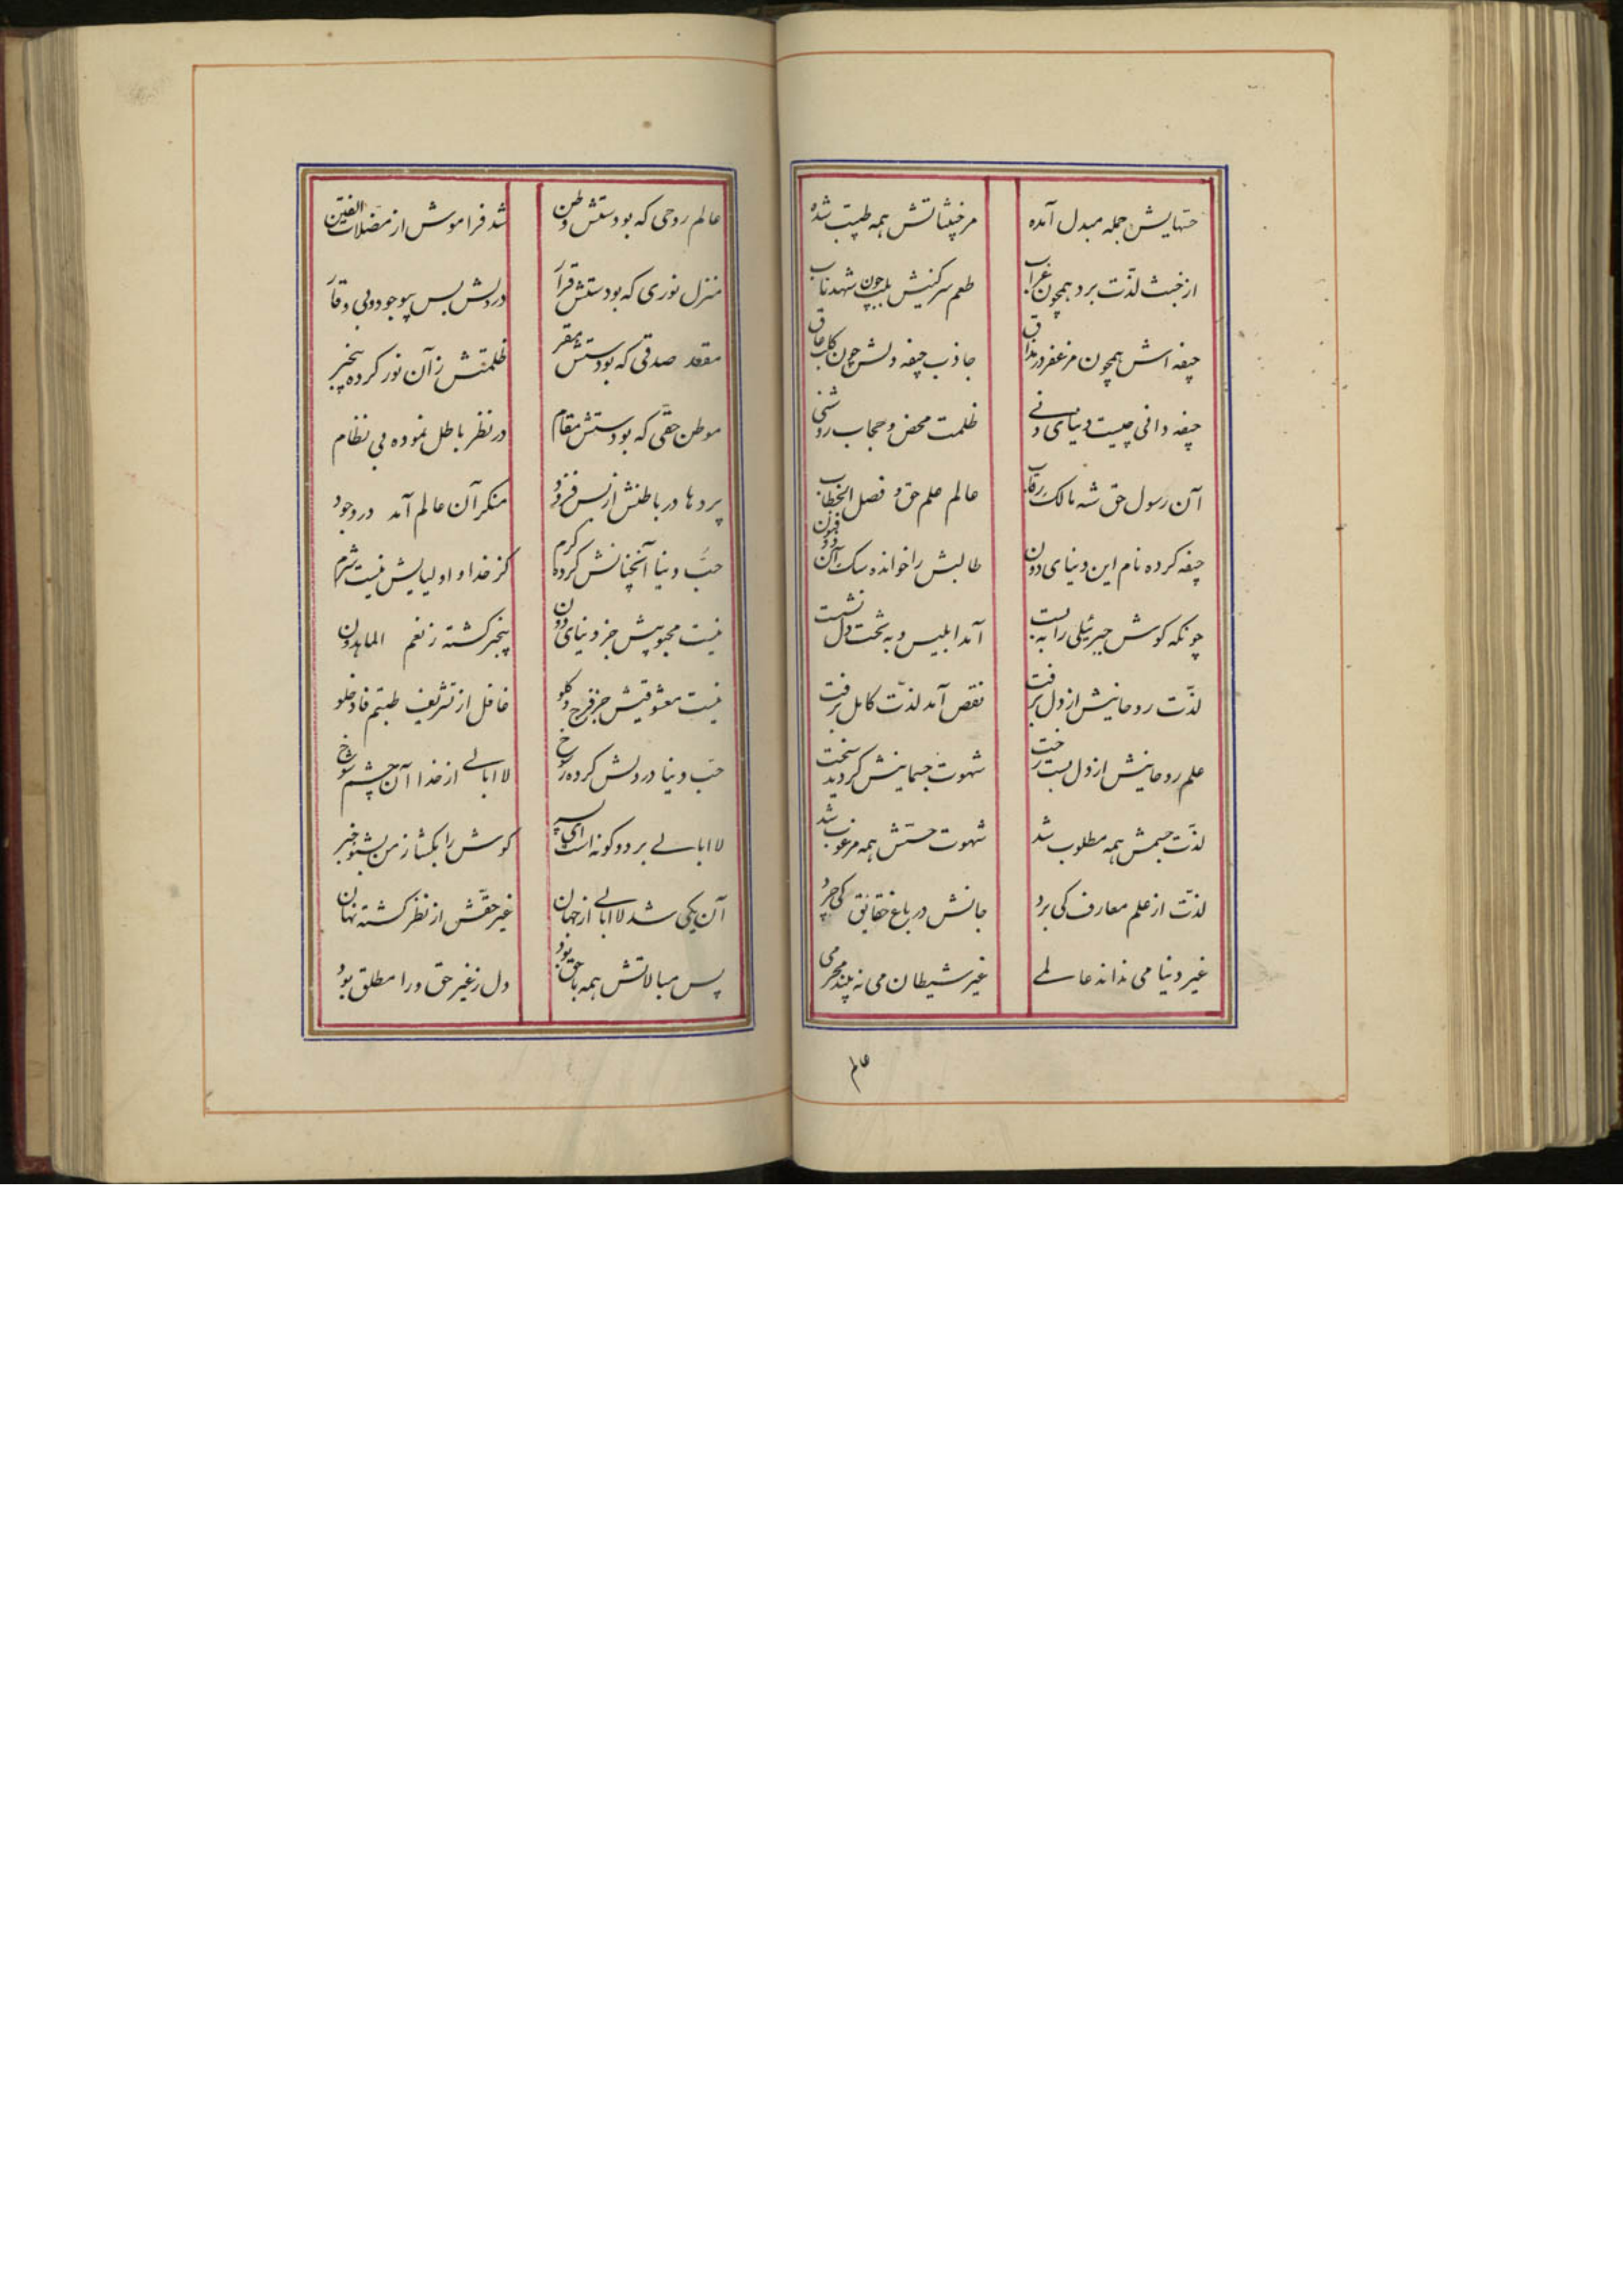 حسّهایش جمله مبدل آمده
مرخبیثاتش همه طیّب شده
از خبث لذّت برد همچون غراب
طعم سرکینش بلب چون شهد ناب
جیفه اش همچون مزعفر در مذاق
جاذب جیفه دلش چون کلب عاق
جیفه دانی چیست دنیای دنی
ظلمت محض و حجاب روشنی
آن رسول حق شه مالک رقاب
عالم علم حق و فصل الخطاب
جیفه کرده نام این دنیای دون
طالبش را خوانده سک آن ذو فنون
چونکه کوش جبرئیلی را ببست
آمد ابلیس و به تخت دل نشست
لذّت روحانیش از دل برفت
نقص آمد لذّت کامل برفت
علم روحانیش از دل بست رخت
شهوت جسمانیش کردید سخت
لذّت جسمش همه مطلوب شد
شهوت حسّش همه مرغوب شد
لذت از علم معارف کی برد
جانش در باغ حقایق کی چرد
غیر دنیا می نداند عالمی
غیر شیطان می نه بیند محرمی
عالم روحی که بودستش وطن
شد فراموش از مضلّات الفتن
منزل نوری که بودستش قرار
در دلش بس بیوجود و بی وقار
مقعد صدقی که بودستش مقر
ظلمتش زآن نور کرده بیخبر
موطن حقّی که بودستش مقام
در نظر باطل نموده بی نظام
پردها در باطنش از بس فزود
منکر آن عالم آمد در وجود
حبّ دنیا آنچنانش کرده کرم
کز خدا و اولیایش نیست شرم
نیست محبوبیش جز دنیای دون
بیخبر کشته ز نعم الماهدون
نیست معشوقیش جز فرج و کلو
غافل از تشریف طبتم فادخلو
حبّ دنیا در دلش کرده رسوخ
لا ابالی از خدا آن چشم شوخ
لا ابالی بر دو کونه است ای پسر
کوش را بکشا ز من بشنو خبر
آن یکی شد لا ابالی از جهان
غیر حقّش از نظر کشته نهان
پس مبالاتش همه با حق بود
دل ز غیر حق ورا مطلق بود